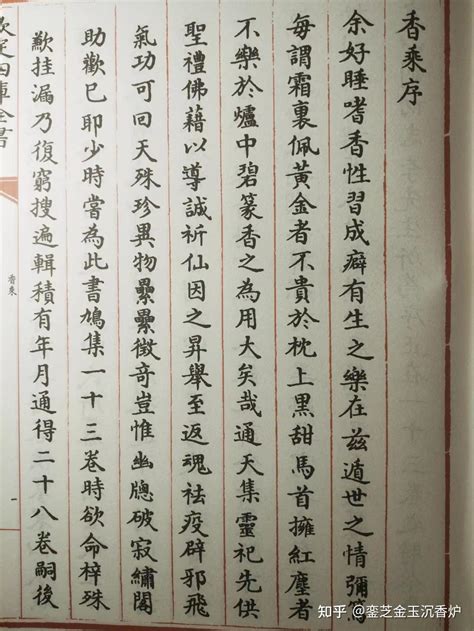 香乘序
余好睡嗜香性習成癖有生之樂在兹遁世之情彌篤
每謂霜裏佩黃金者不貴於枕上黑甜馬首擁紅塵者
不樂於爐中碧篆香之為用大矣哉通天集靈祀先供
聖禮佛藉以導誠祈仙因之昇舉至返魂祛疫辟邪飛
氣功可回天殊珍異物纍纍徵奇豈惟幽牕破寂繡閣
助歡已耶少時嘗為此書鳩集一十三卷時欲命梓殊
歉挂漏乃復窮搜遍輯積有年月通得二十八卷嗣後
欽定四庫全書
香乘
一
知乎 @銮芝金玉沉香炉